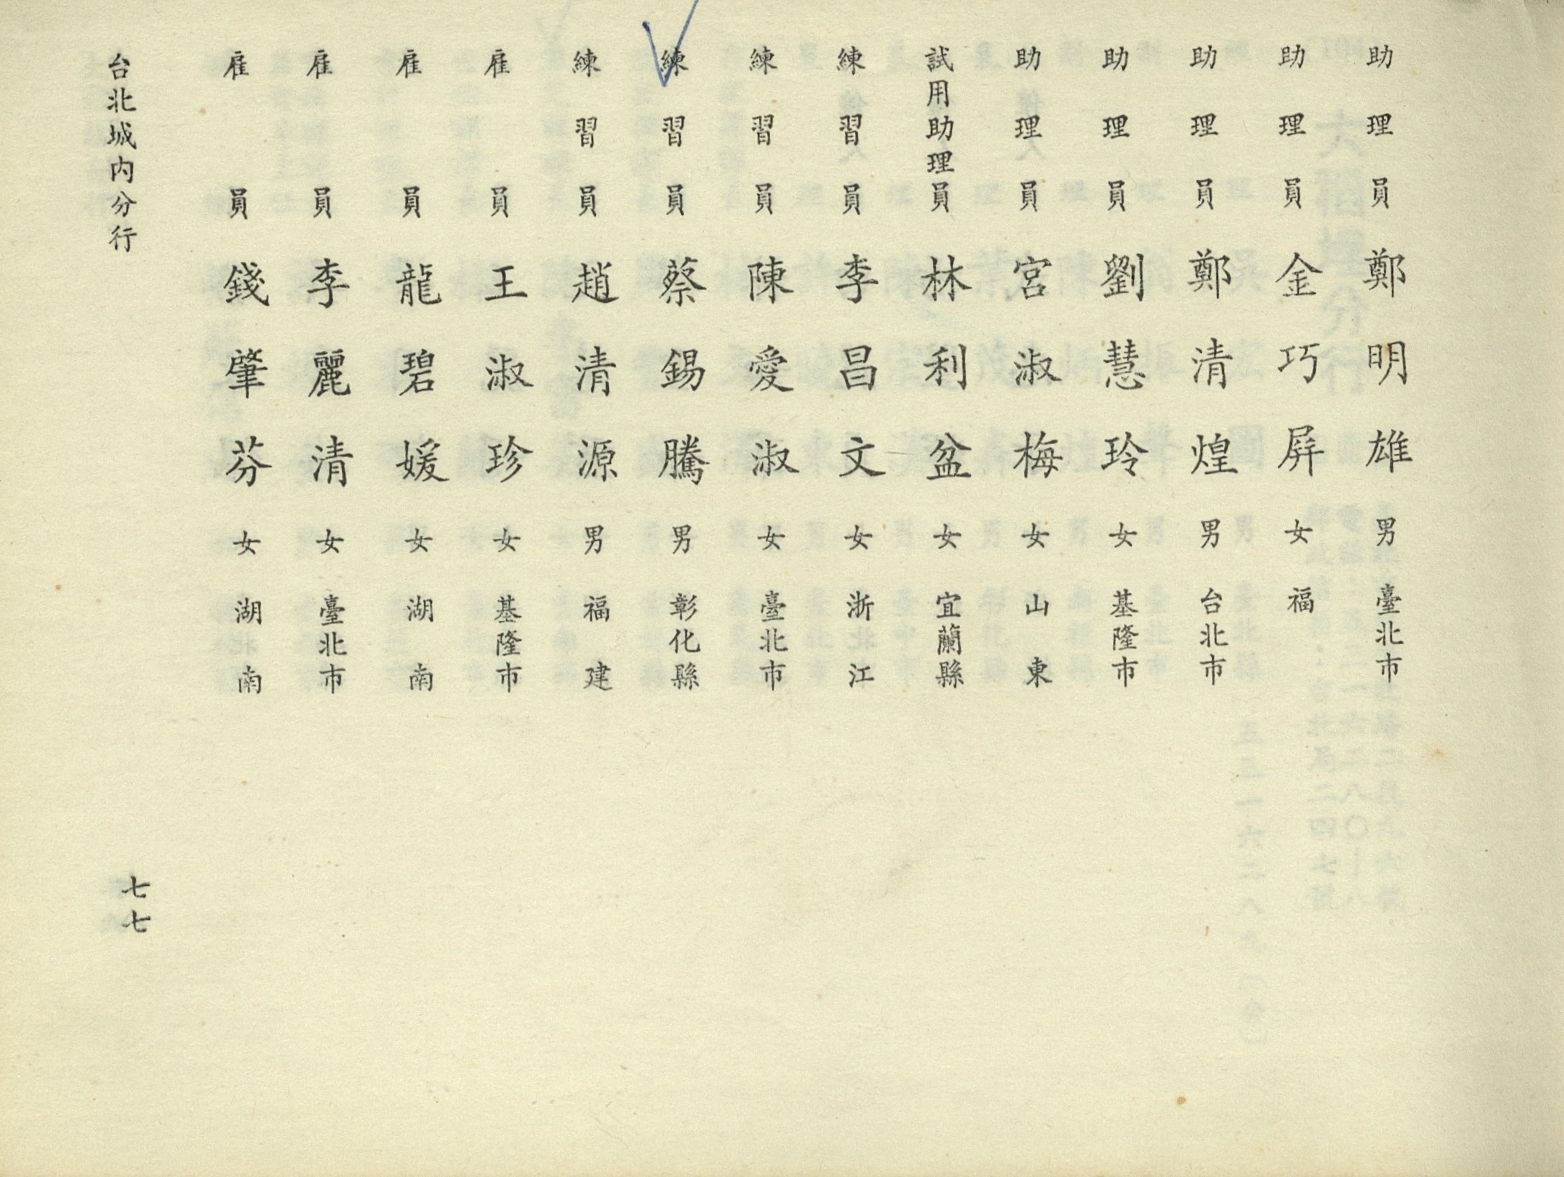 助理員 鄭明雄 男 臺北市
助理員 金巧屏 女 福
助理員 鄭清煌 男 台北市
助理員 劉慧玲 女 基隆市
助理員 宮淑梅 女 山東
試用助理員 林利盆 女 宜蘭縣
練習員 李昌文 女 浙江
練習員 陳愛淑 女 臺北市
練習員 蔡錫騰 男 彰化縣
練習員 趙清源 男 福建
雇員 王淑珍 女 基隆市
雇員 龍碧媛 女 湖南
雇員 李麗清 女 臺北市
雇員 錢肇芬 女 湖南
台北城内分行
七七